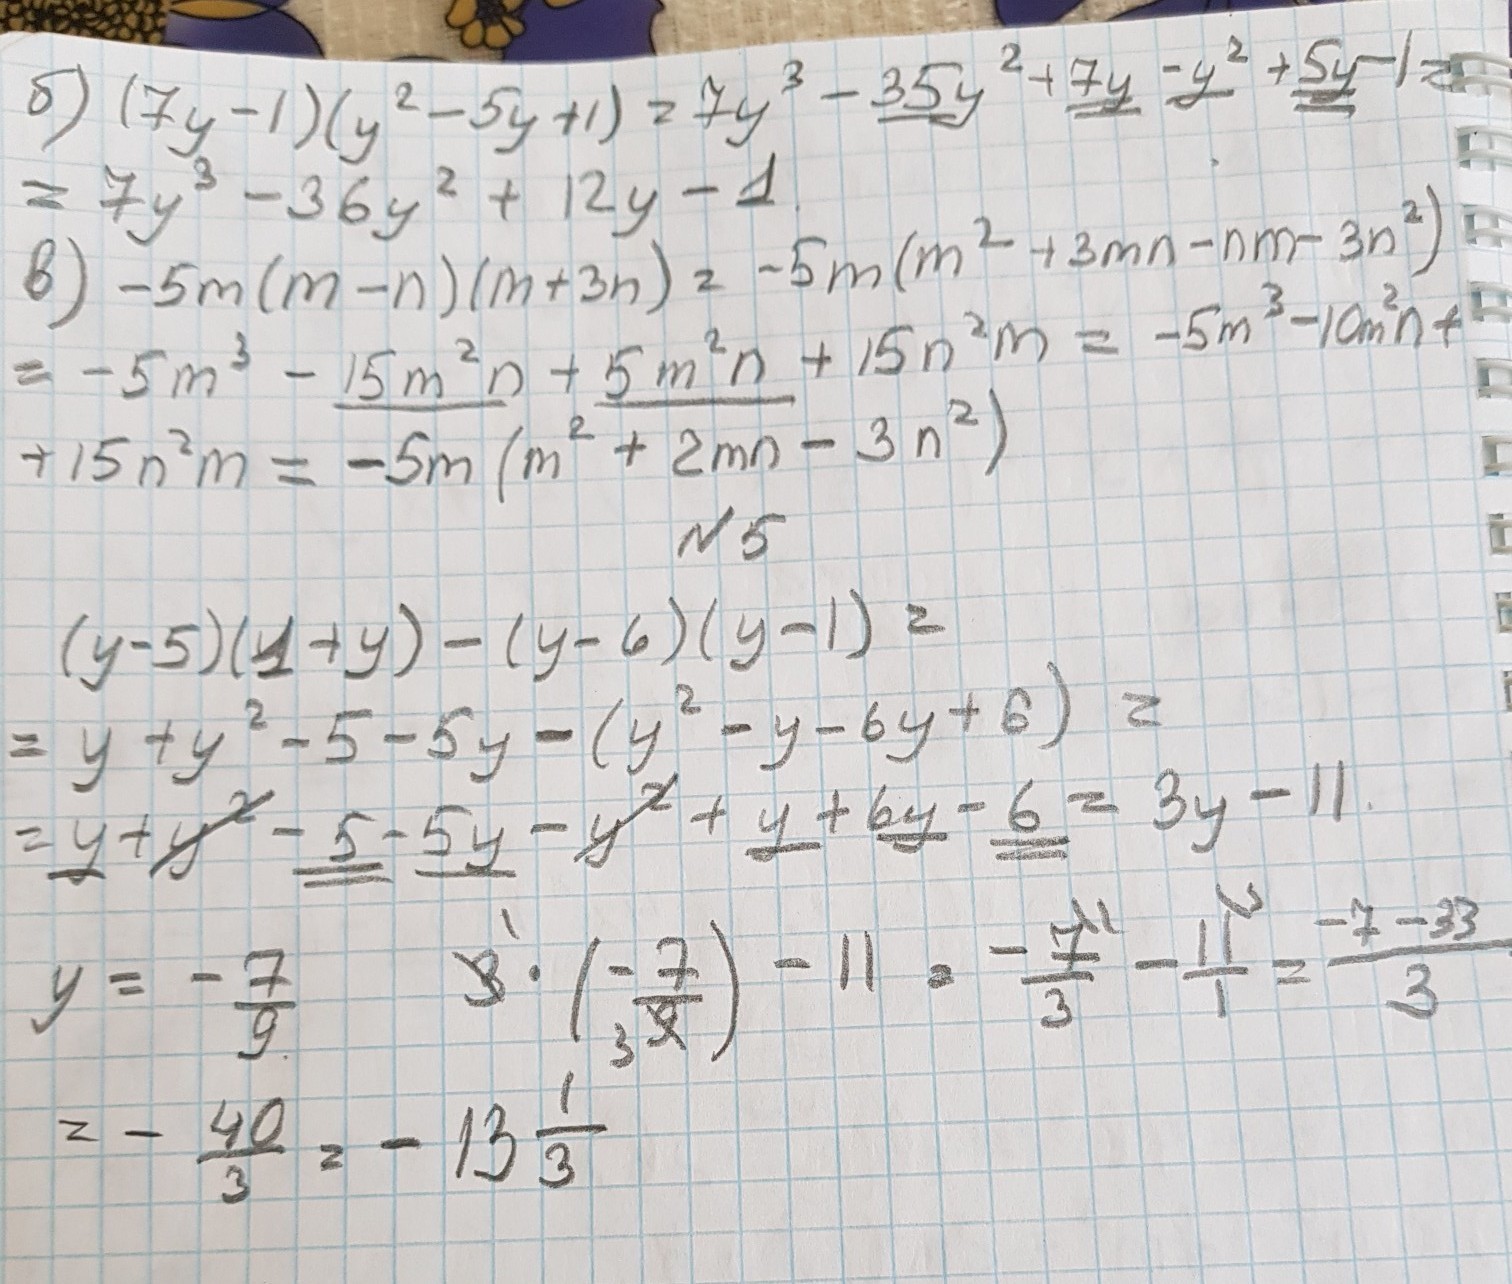 б) (7y-1)(y²-5y+1) = 7y³ - 35y² + 7y - y² + 5y - 1 =
= 7y³ - 36y² + 12y - 1.
в) -5m(m-n)(m+3n) = -5m(m² + 3mn - nm - 3n²)
= -5m³ - 15m²n + 5m²n + 15n²m = -5m³ - 10m²n +
+ 15n²m = -5m(m² + 2mn - 3n²)
№5
(y-5)(1+y) - (y-6)(y-1) =
= y + y² - 5 - 5y - (y² - y - 6y + 6) =
= y + y² - 5 - 5y - y² + y + 6y - 6 = 3y - 11.
y = -7/9. 3 · (-7/9) - 11 = -7/3 - 11/1 = (-7-33)/3
= -40/3 = -13 1/3